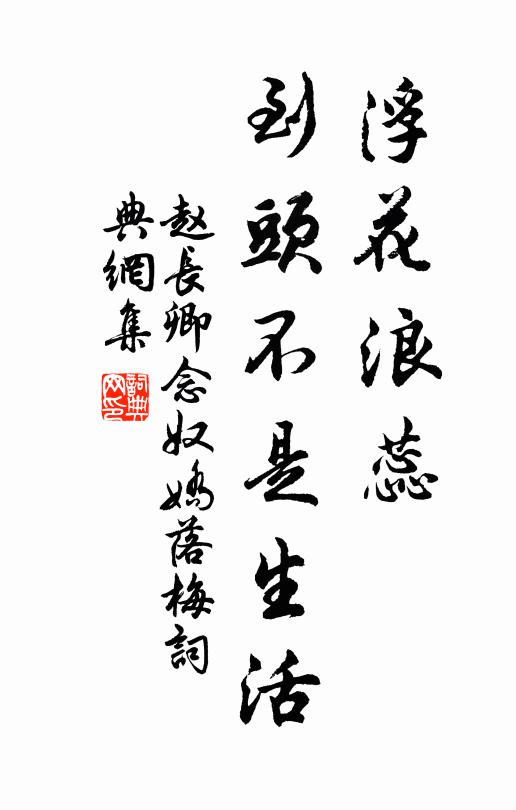 浮花浪蕊
到頭不是生活
赵長卿念奴嬌落梅詞
典網集
詞典網印